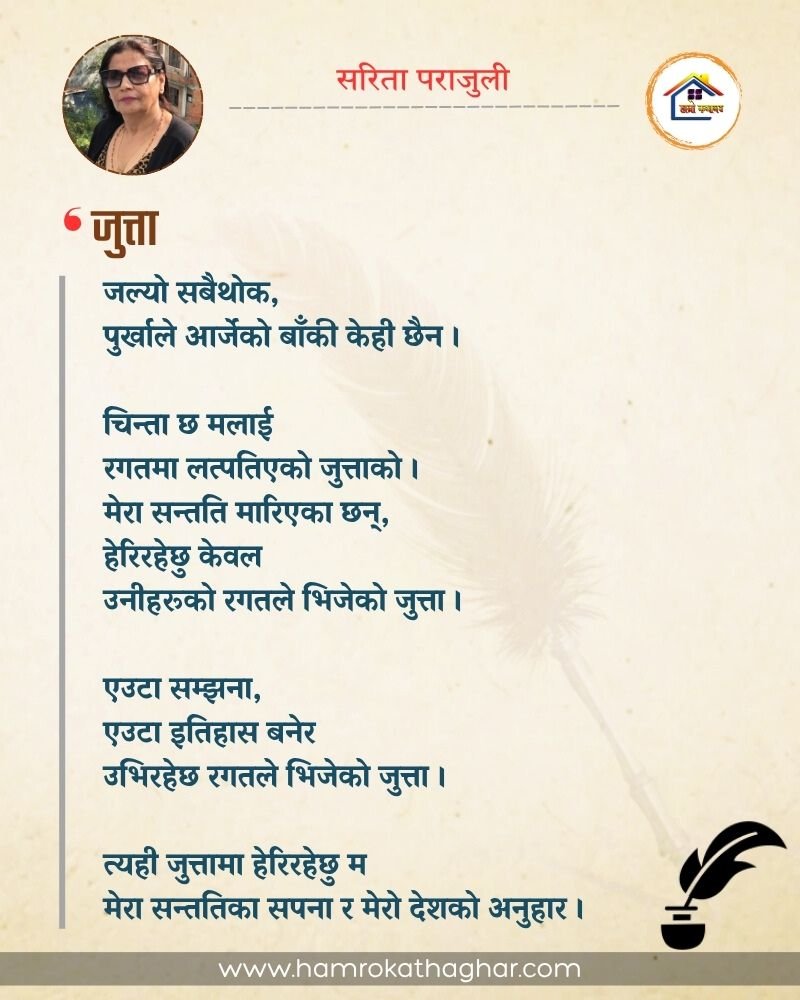 सरिता पराजुली
हाम्रो कथाघर
जुत्ता
जल्यो सबैथोक,
पुर्खाले आर्जेको बाँकी केही छैन ।
चिन्ता छ मलाई
रगतमा लत्पतिएको जुत्ताको ।
मेरा सन्तति मारिएका छन्,
हेरिरहेछु केवल
उनीहरूको रगतले भिजेको जुत्ता ।
एउटा सम्झना,
एउटा इतिहास बनेर
उभिरहेछ रगतले भिजेको जुत्ता ।
त्यही जुत्तामा हेरिरहेछु म
मेरा सन्ततिका सपना र मेरो देशको अनुहार ।
www.hamrokathaghar.com